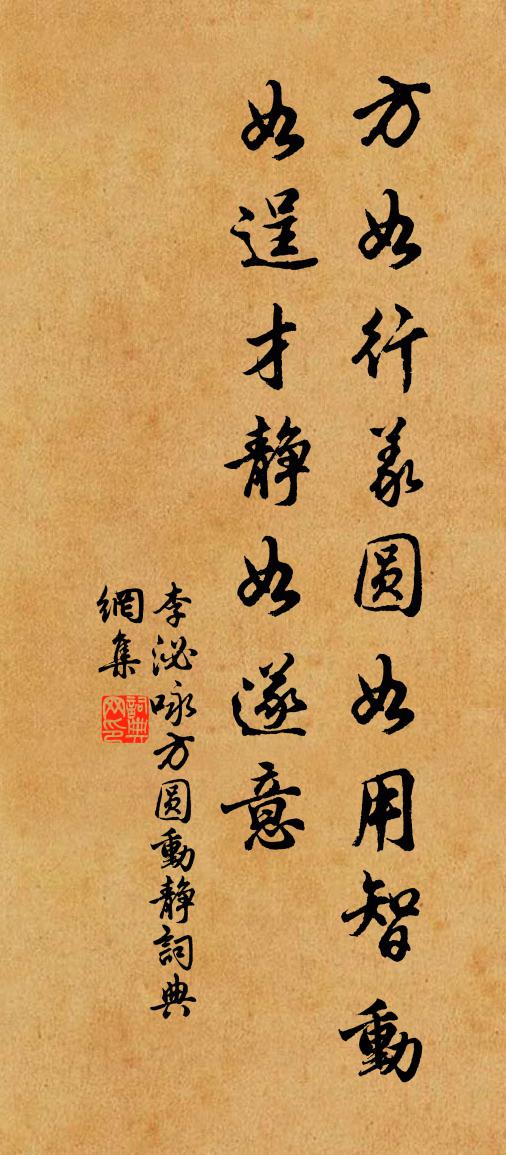 方如行義圓如用智動
如逞才静如遂意
李泌咏方圓動静詞典
網集
詞典
网印